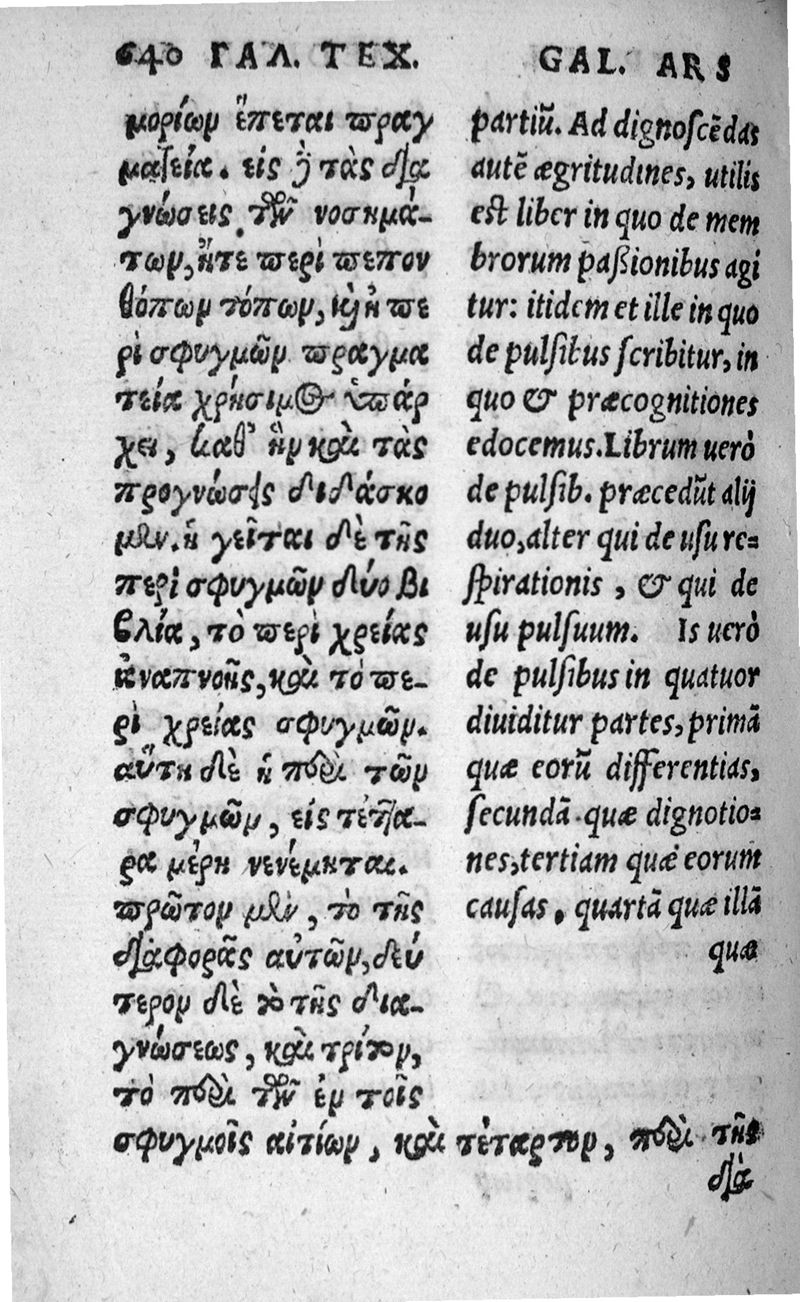 640 ΓΑΛ. ΤΕΧ.
μορίων ἕπεται πραγ
ματεία. εἰς ἢ τὰς δια
γνώσεις τῶν νοσημά-
των, ἥτε περὶ πεπον
θόπων τόπων, καὶ ἡ πε
ρὶ σφυγμῶν πραγμα
τεία χρήσιμος ὑπάρ
χει, καθ' ἣν καὶ τὰς
προγνώσεις διδάσκο
μεν. ἡγεῖται δὲ τῆς
περὶ σφυγμῶν δύο βι
βλία, τὸ περὶ χρείας
ἀναπνοῆς, καὶ τὸ πε-
ρὶ χρείας σφυγμῶν.
αὕτη δὲ ἡ περὶ τῶν
σφυγμῶν, εἰς τέτ]α-
ρα μέρη νενέμηται.
πρῶτον μὲν, τὸ τῆς
διαφορᾶς αὐτῶν, δεύ
τερον δὲ τὸ τῆς δια-
γνώσεως, καὶ τρίτον,
τὸ περὶ τῶν ἐν τοῖς
σφυγμοῖς αἰτίων, καὶ τέταρτον, περὶ τῆς
δια
GAL. ARS
partiū. Ad dignoscēdas
autē ægritudines, utilis
est liber in quo de mem
brorum paßionibus agi
tur: itidem et ille in quo
de pulsibus scribitur, in
quo & præcognitiones
edocemus. Librum uerò
de pulsib. præcedūt alij
duo, alter qui de usu re=
spirationis, & qui de
usu pulsuum. Is uerò
de pulsibus in quatuor
diuiditur partes, primā
quæ eorū differentias,
secundā quæ dignotio=
nes, tertiam quæ eorum
causas, quartā quæ illā
quæ